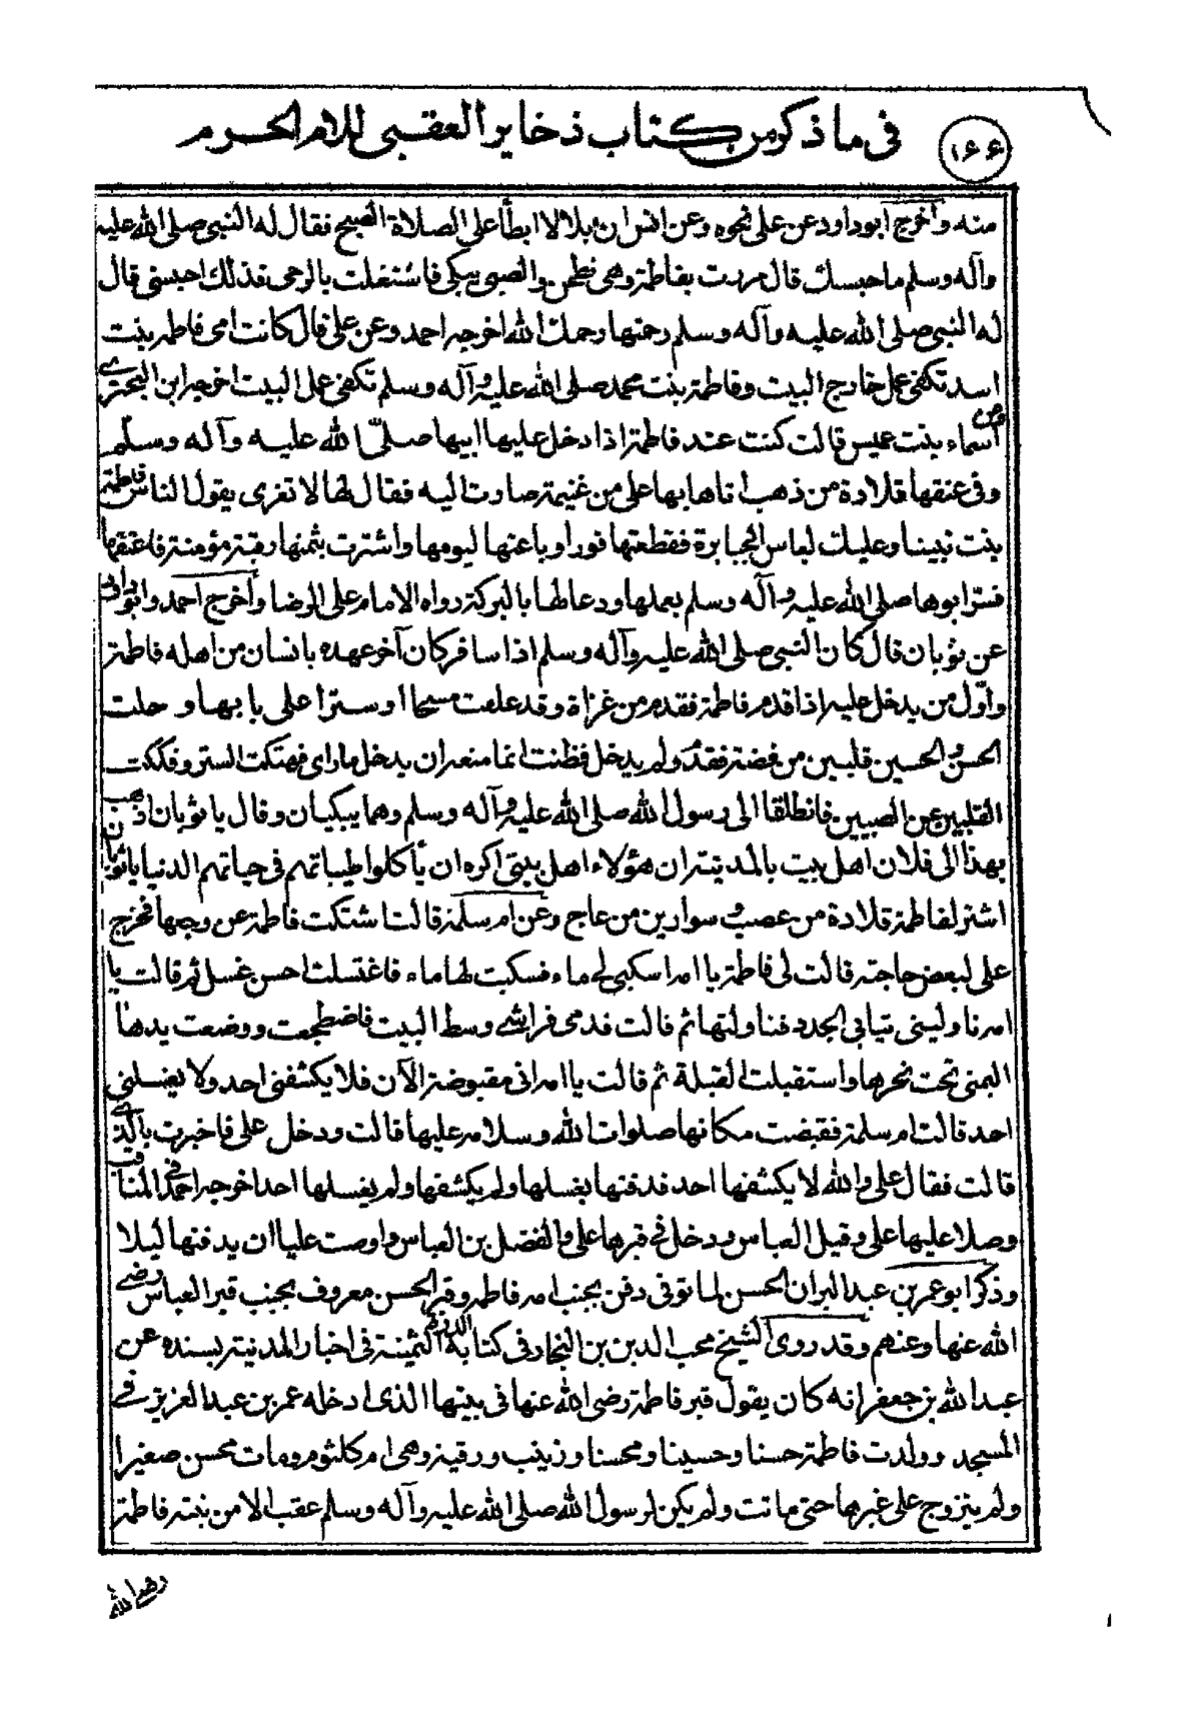 ١٦٦
فى ما ذكر من كتاب ذخاير العقبى للامام الحرم
منه وأخرج ابو داود عن على نحوه وعن انس ان بلالا ابطأ على الصلاة الصبح فقال له النبى صلى الله عليه
وآله وسلم ما حبسك قال مررت بفاطمة وهى تطحن والصبى يبكى فاشتغلت بالرحى فذلك احبسنى قال
له النبى صلى الله عليه وآله وسلم رحمتها رحمك الله اخرجه احمد وعن على قال كانت امى فاطمة بنت
اسد تكفى عمل خارج البيت وفاطمة بنت محمد صلى الله عليه وآله وسلم تكفى عمل البيت اخرجه ابن البحترى
وعن أسماء بنت عميس قالت كنت عند فاطمة اذا دخل عليها ابيها صلى الله عليه وآله وسلم
وفى عنقها قلادة من ذهب اتاها بها على من غنيمة صارت اليه فقال لها لا تغرى يقول الناس فاطمة
بنت نبينا وعليك لباس الجبابرة فقطعتها فورا وباعتها ليومها واشترت بثمنها رقبة مؤمنة فاعتقها
فسر ابوها صلى الله عليه وآله وسلم بعملها ودعا لها بالبركة رواه الامام على الرضا وأخرج احمد وابو
عن ثوبان قال كان النبى صلى الله عليه وآله وسلم اذا سافر كان آخر عهده بانسان من اهله فاطمة
واول من يدخل عليه اذا قدم فاطمة فقدم من غزاة وقد علقت مسحا او سترا على بابها وحلت
الحسن والحسين قلبين من فضة فقدم ولم يدخل فظنت انما منعه ان يدخل ما راى فهتكت الستر وفككت
القلبين عن الصبيين فانطلقا الى رسول الله صلى الله عليه وآله وسلم وهما يبكيان وقال يا ثوبان اذهب
بهذا الى فلان اهل بيت بالمدينة ان هؤلاء اهل بيتى اكره ان يأكلوا طيباتهم فى حياتهم الدنيا يا ثوبان
اشتر لفاطمة قلادة من عصب و سوارين من عاج وعن ام سلمة قالت اشتكت فاطمة عن وجعها فخرج
على لبعض حاجته قالت لى فاطمة يا امه اسكبى لى ماء فسكبت لها ماء فاغتسلت احسن غسل ثم قالت يا
امه ناولينى ثيابى الجدد فناولتها ثم قالت قدمى فراشى وسط البيت فاضطجعت ووضعت يدها
اليمنى تحت نحرها واستقبلت القبلة ثم قالت يا امه انى مقبوضة الآن فلا يكشفنى احد ولا يغسلنى
احد قالت ام سلمة فقبضت مكانها صلوات الله وسلامه عليها قالت ودخل على فاخبرت بالذى
قالت فقال على والله لا يكشفها احد فدفنها بغسلها ولم يكشفها ولم يغسلها احد اخرجه احمد فى المناقب
وصلا عليها على وقيل العباس ودخل فى قبرها على والفضل بن العباس واوصت عليا ان يدفنها ليلا
وذكر ابو عمر بن عبد البر ان الحسن لما توفى دفن بجنب امه فاطمة وقبر الحسن معروف بجنب قبر العباس رضى
الله عنها وعنهم وقد روى الشيخ محب الدين بن النجار فى كتابه الدرة الثمينة فى اخبار المدينة بسنده عن
عبد الله بن جعفر انه كان يقول قبر فاطمة رضى الله عنها فى بيتها الذى ادخله عمر بن عبد العزيز فى
المسجد وولدت فاطمة حسنا وحسينا ومحسنا وزينب ورقية وهى ام كلثوم ومات محسن صغيرا
ولم يتزوج على غيرها حتى ماتت ولم يكن لرسول الله صلى الله عليه وآله وسلم عقب الا من بنته فاطمة
رضى الله